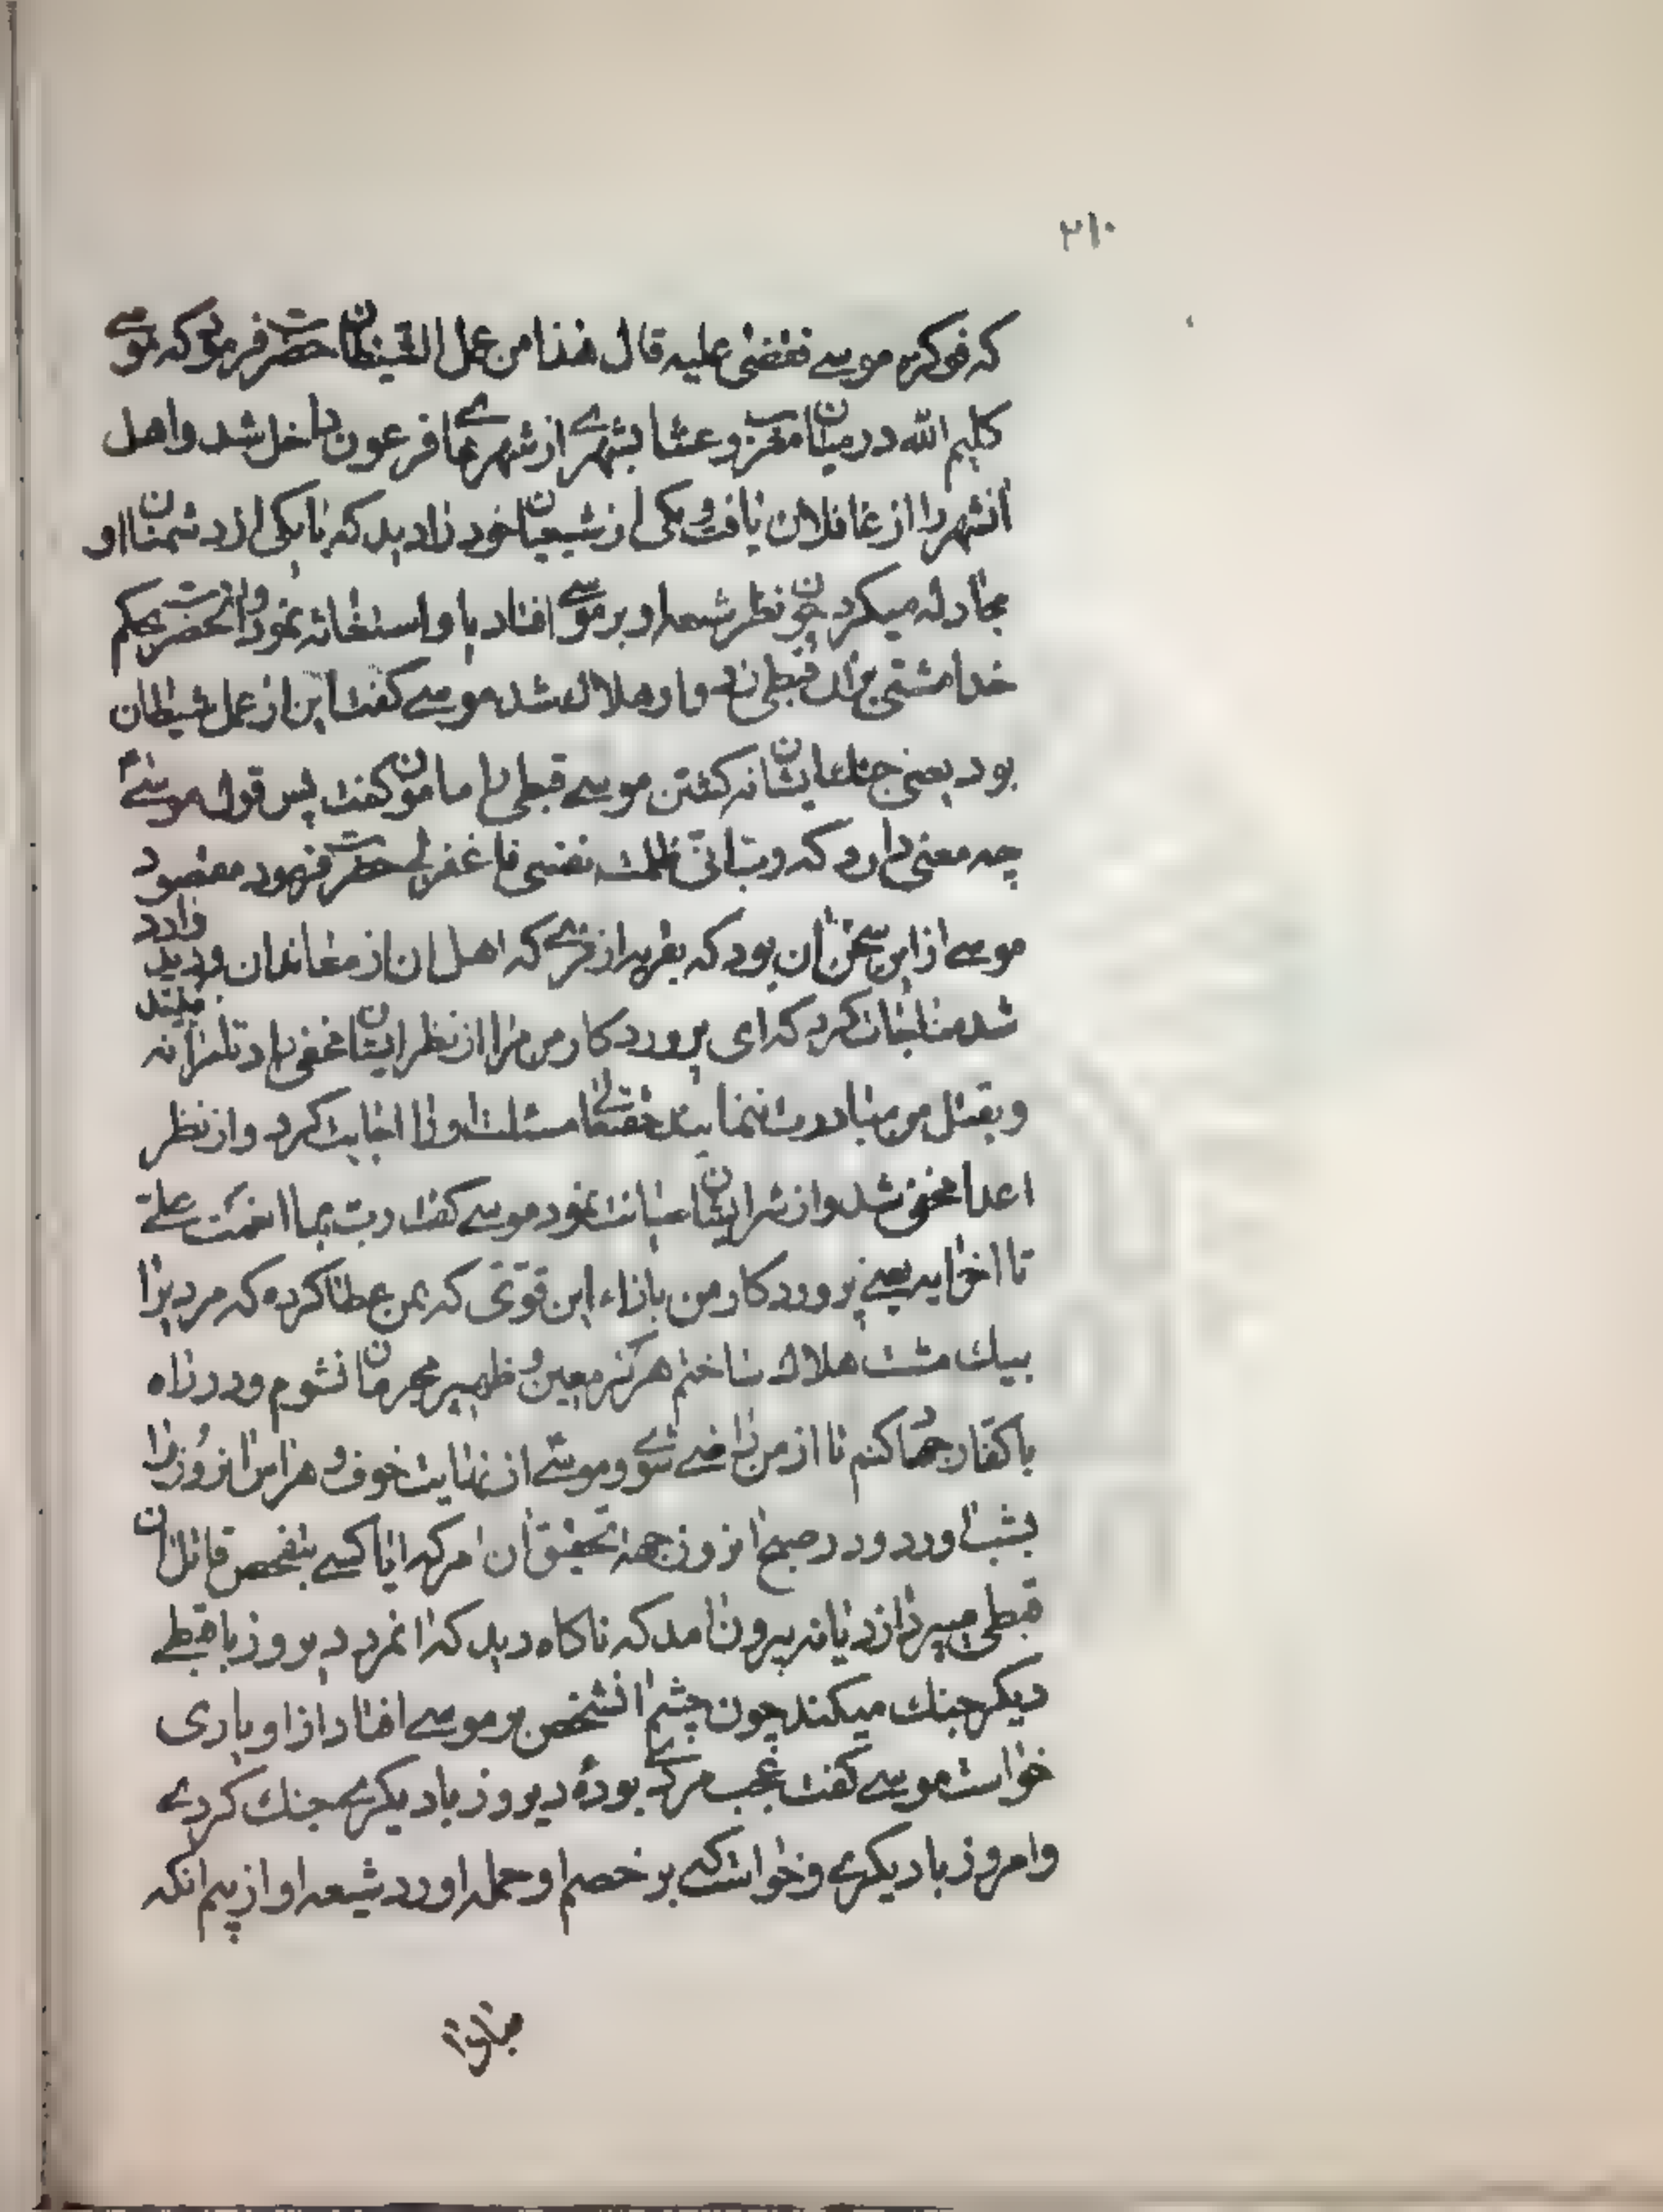 ۲۱۰
که فوکزه موسے فقضی علیه قال هذا من عمل الشیطان حضرت فرمود که موسے
کلیم الله در میان مغرب و عشا بشهرے از شهرهاے فرعون داخل شد و اهل
انشهر را از غافلان یافت و یکی از شیعیان خود را دید که با یکی از دشمنان او
مجادله میکرد چون نظر شیعه او بر موسے افتاد باو استغاثه نمود و انحضرت بحکم
خدا مشتی بران قبطی زد و او هلاک شد موسے گفت این از عمل شیطان
بود یعنی جنک ایشان نه کشتن موسے قبطی را مامون گفت پس قول موسے
چه معنی دارد که رب انی ظلمت نفسی فاغفرلی حضرت فرمود مقصود
موسے از این سخن آن بود که بقریه از قرے که اهل ان از معاندان وارد
شد مناجات کرد که ای پروردکار من مرا از نظر ایشان مخفی دار تا مرا نه بینند
و بقتل من مبادرت ننمایند حقتعالی مسئلت او را اجابت کرد و از نظر
اعدا مخفی شد و از شر ایشان صیانت نمود موسے گفت رب بما انعمت علے
تا اخر ایه یعنے پروردکار من بازاء این قوتی که بمن عطا کرده که مردیرا
بیک مشت هلاک ساختم هرکز معین و ظهیر مجرمان نشوم و در راه
با کفار جهاد کنم تا از من راضے شوے و موسے از نهایت خوف و هراس انروز را
بشب اورد و در صبح انروز جهة تحقیق آن امر که ایا کسے بتفحص قاتل آن
قبطی میپردازد یا نه بیرون امد که ناکاه دید که انمرد دیروز با قبطے
دیکر جنک میکند چون چشم انشخص بر موسے افتاد از او یاری
خواست موسے گفت عجب مرکے بودۀ دیروز با دیکرے جنک کردے
و امروز با دیکرے و خواست که بر خصم او حمله اورد شیعه او از بیم انکه
مبادا